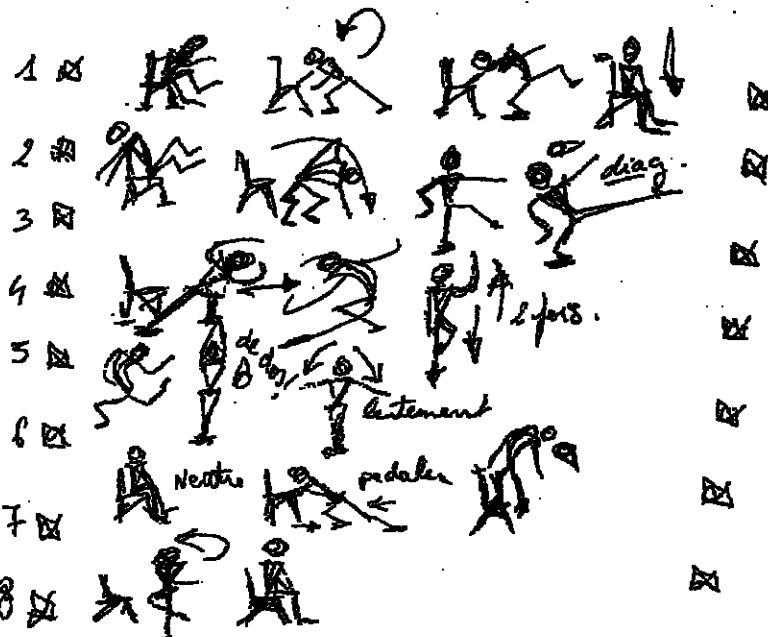 1
2
diag.
3
4
2 fois.
5
de
dos
6
lentement
Neutre
pédaler
7
8